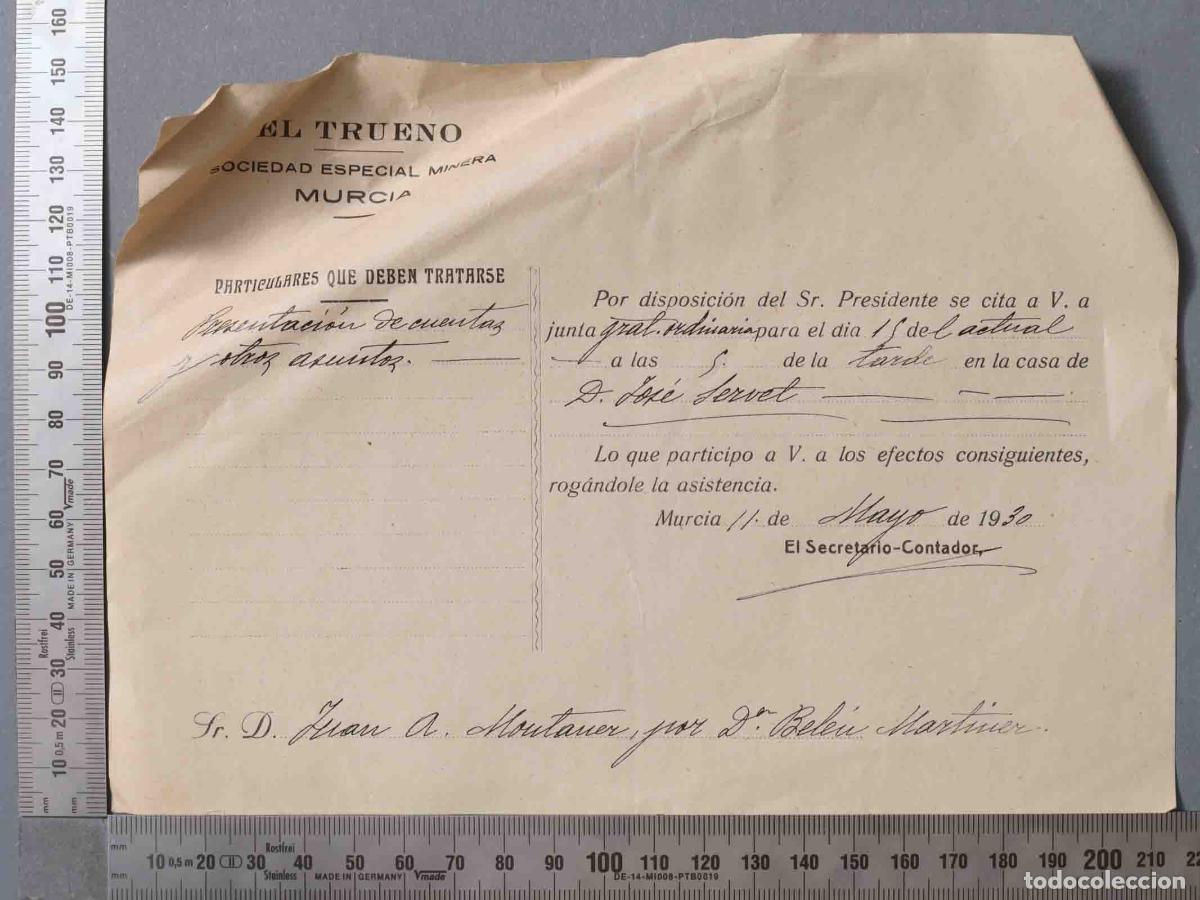 EL TRUENO
SOCIEDAD ESPECIAL MINERA
MURCIA
PARTICULARES QUE DEBEN TRATARSE
Presentación de cuentas
y otros asuntos.
Por disposición del Sr. Presidente se cita a V. a
junta gral. ordinaria para el dia 15 del actual
a las 5. de la tarde en la casa de
D. José Servet
Lo que participo a V. a los efectos consiguientes,
rogándole la asistencia.
Murcia 11. de Mayo de 1930
El Secretario-Contador,
Sr. D. Juan A. Montaner, por Dª Belén Martinez
160
150
140
130
120
110
100
90
80
70
60
50
40
30
20
10
0,5 m
mm
mm
DE-14-MI008-PTB0019
MADE IN GERMANY Vmade
Rostfrei
Stainless
mm
mm
10 0,5 m 20 30 40 50 60 70 80 90 100 110 120 130 140 150 160 170 180 190 200 210
Rostfrei
Stainless
MADE IN GERMANY Vmade
DE-14-MI008-PTB0019
todocoleccion